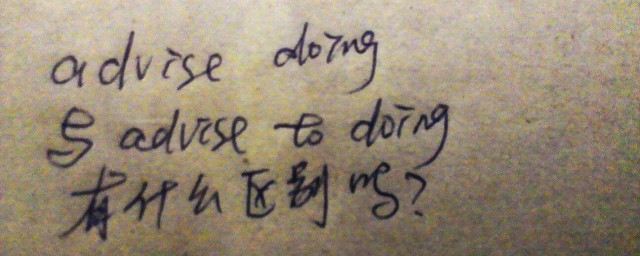 advise doing
与 advise to doing
有什么区别吗?